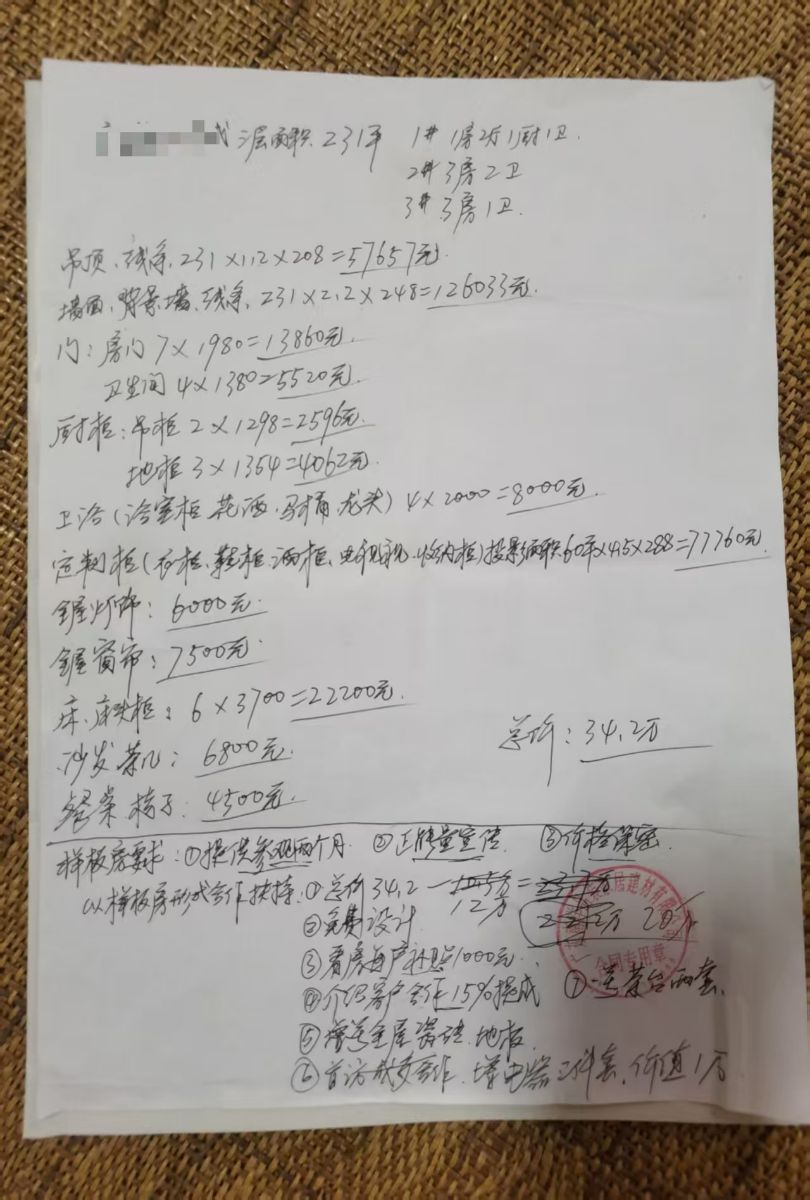 三层面积 231平 1# 1房2厅1厨1卫
2# 3房2卫
3# 3房1卫.
吊顶、线条, 231×1.2×208=57657元.
墙面、背景墙、线条, 231×2.2×248=126033元.
门: 房门 7×1980=13860元.
卫生间 4×1380=5520元.
厨柜: 吊柜 2×1298=2596元.
地柜 3×1354=4062元.
卫浴(浴室柜 花洒、马桶、龙头) 4×2000=8000元.
定制柜(衣柜、鞋柜、酒柜、电视柜、收纳柜)投影面积60平×4.5×288=77760元.
全屋灯饰: 6000元.
全屋窗帘: 7500元.
床、床头柜: 6×3700=22200元.
沙发茶几: 6800元. 总价: 34.2万
餐桌椅子: 4500元.
样板房要求: ①提供参观两个月. ②正能量宣传. ③价格保密.
以样板房形式合作扶持: ①总价 34.2－10.5万=23.7万
12万
②免费设计 22.2万 20万
③看房每户补贴1000元. 居建材有限
④介绍客户合作15%提成 ⑦一送茶台两套.
合同专用章
⑤增送全屋瓷砖、地板.
⑥首访成交合作, 增电器三件套, 价值1万